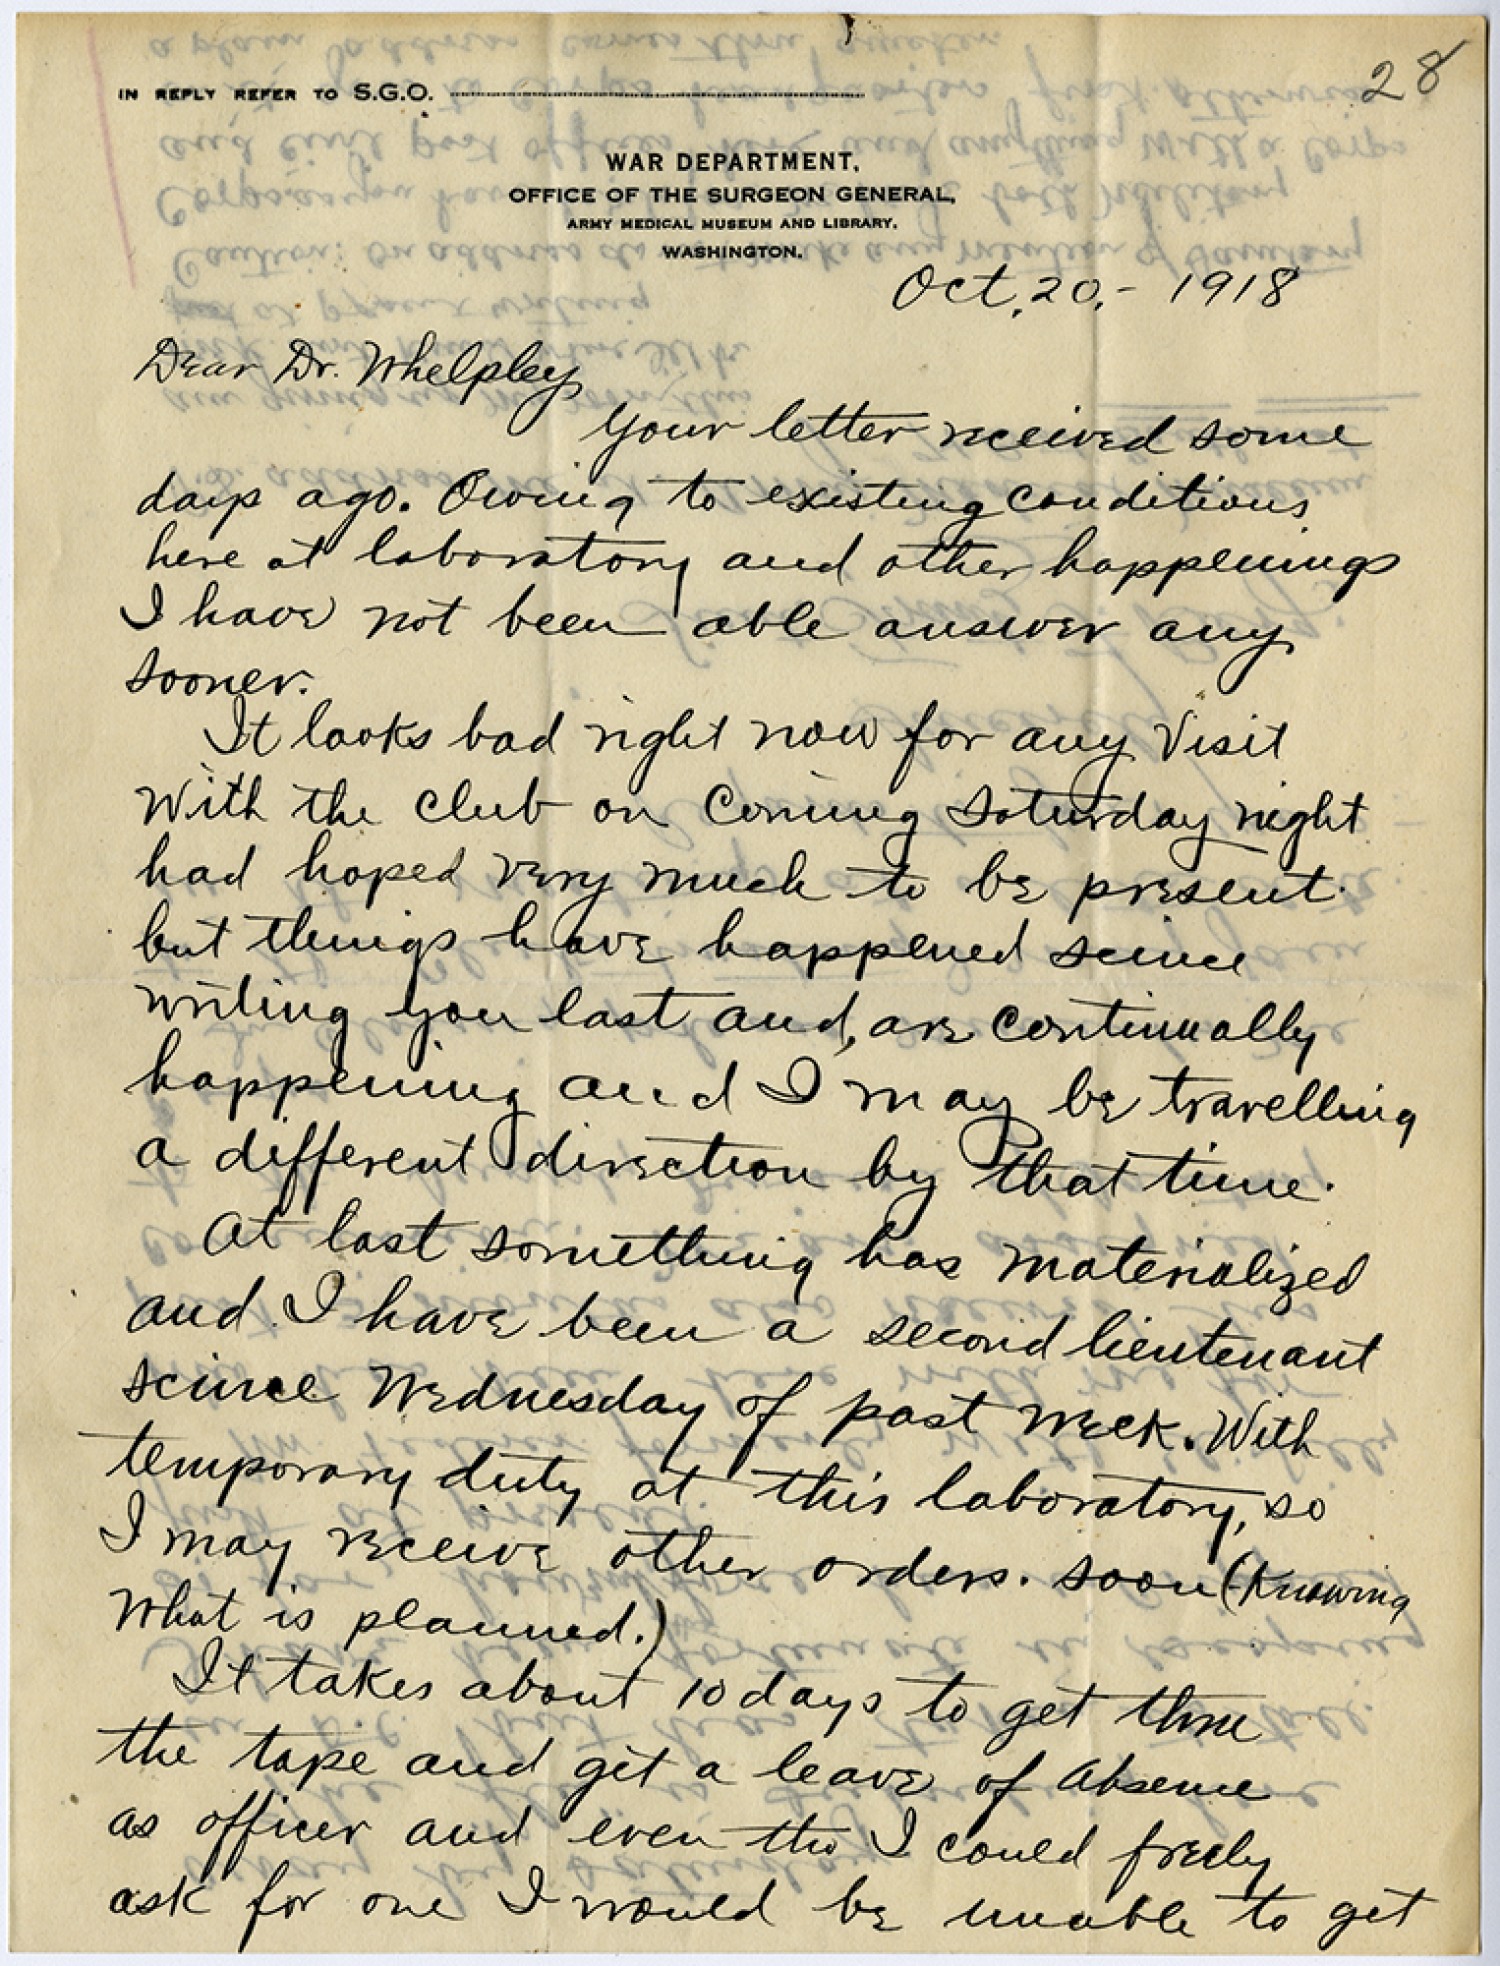 28
IN REPLY REFER TO S.G.O.
WAR DEPARTMENT,
OFFICE OF THE SURGEON GENERAL,
ARMY MEDICAL MUSEUM AND LIBRARY,
WASHINGTON.
Oct. 20.- 1918
Dear Dr. Whelpley
Your letter received some
days ago. Owing to existing conditions
here at laboratory and other happenings
I have not been able answer any
sooner.
It looks bad right now for any visit
With the club on coming Saturday night
had hoped very much to be present.
but things have happened scince
writing you last and, are continually
happening and I may be travelling
a different direction by that time.
At last something has materialized
and I have been a second lieutenant
scince Wednesday of past week. With
temporary duty at this laboratory, so
I may receive other orders. soon (Knowing
What is planned.)
It takes about 10 days to get thru
the tape and get a leave of absence
as officer and even tho I could freely
ask for one I would be unable to get